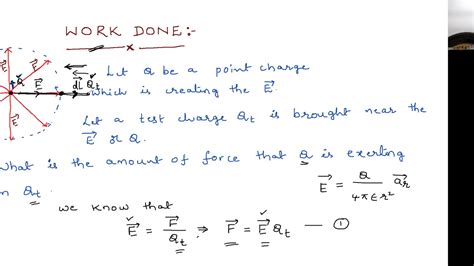 WORK DONE:-
E E
E Q E dL Qt
E
Let Q be a point charge
which is creating the E.
Let a test charge Qt is brought near the
E of Q.
What is the amount of force that Q is exerting
on Qt
E = Q / 4π∈r² ar
we know that
E = F / Qt ⇒ F = E Qt — ①